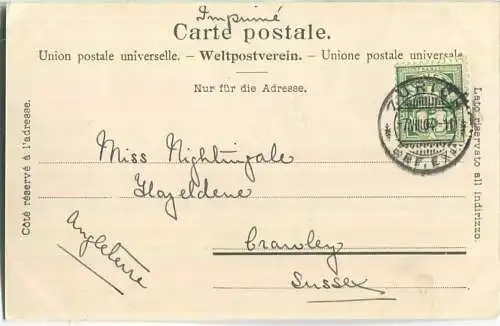 Imprimé
Carte postale.
Union postale universelle. – Weltpostverein. – Unione postale universale
Nur für die Adresse.
Côté réservé à l'adresse.
Lato riservato all indirizzo.
ZÜRICH
BRF. EXP.
Miss Nightingale
Hazeldene
Crawley
Sussex
Angleterre